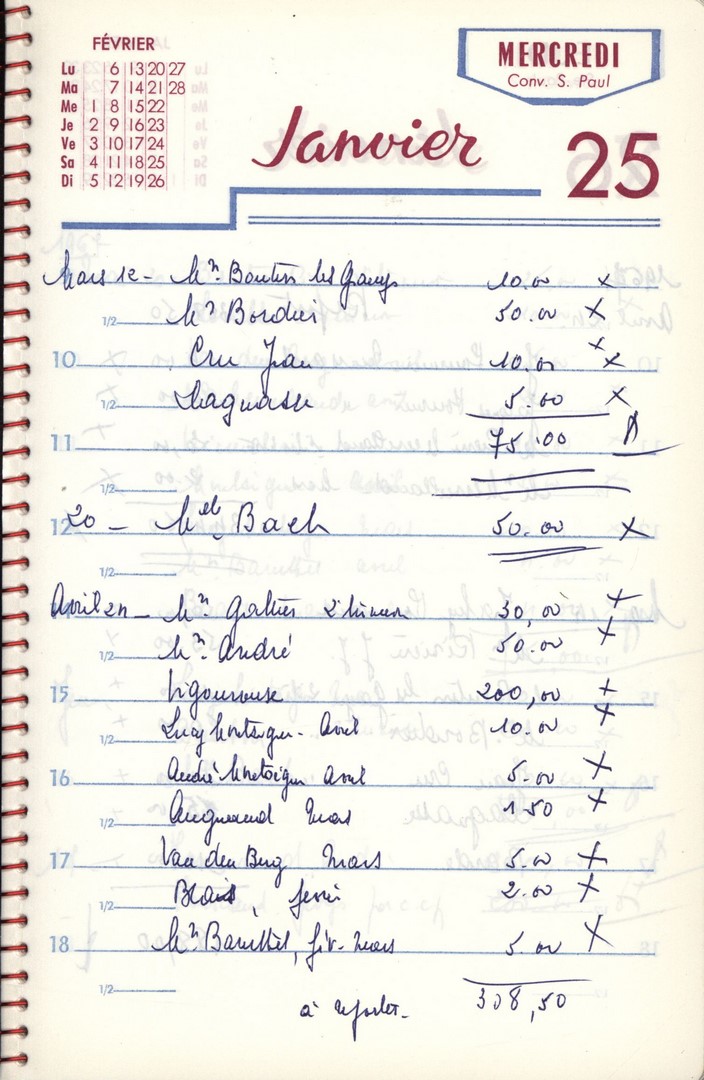 FÉVRIER
Lu 6 13 20 27
Ma 7 14 21 28
Me 1 8 15 22
Je 2 9 16 23
Ve 3 10 17 24
Sa 4 11 18 25
Di 5 12 19 26
MERCREDI
Conv. S. Paul
Janvier 25
Mars 12 - Mr. Bouton les Gangs 10.00 x
1/2 Mr Bordier 50.00 x
10 Cru Jean 10.00 x
1/2 5.00 x
11 75.00
1/2
12 20 - Melle Bach 50.00 x
1/2
Avril 2n - Mr. 30,00 x
1/2 Mr. André 50.00 x
15 Vigouroux 200,00 x
1/2 Lucy Avril 10.00 x
16 André Avril 5.00 x
1/2 Mars 1.50 x
17 Van den Berg Mars 5.00 x
1/2 Blais, 2.00 x
18 Mr, fév-Mars 5.00 x
1/2 à reporter - 308,50